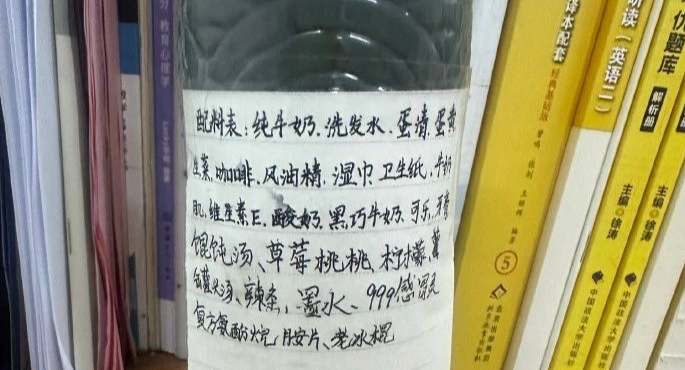 配料表:纯牛奶、洗发水、蛋清、蛋黄
生菜、咖啡、风油精、湿巾、卫生纸、牛奶
肌、维生素E、酸奶、黑巧牛奶、可乐、牙膏
馄饨汤、草莓桃桃、柠檬、薯
汤、辣条、墨水、999感冒灵
复方氨酚烷胺片、老冰棍
教育心理学
译本配套
经典基础版
编著
5
阅读(英语二)
主编 徐涛
中国政法大学出版社
优题库
解析册
主编 徐涛
中国政法大学出版社